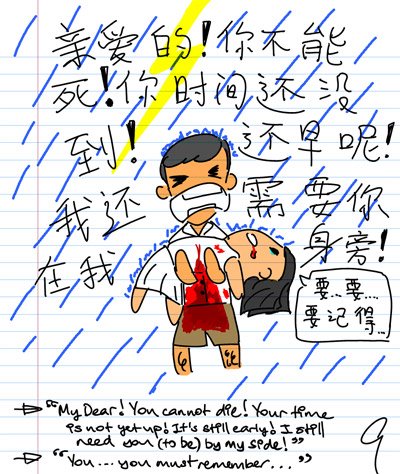 亲爱的!你不能
死!你时间还没
到! 还早呢!
我还 需要你
在我 身旁!
要...要...
要记得...
"My Dear! You cannot die! Your time
is not yet up! It's still early! I still
need you (to be) by my side!"
"You... you must remember..."